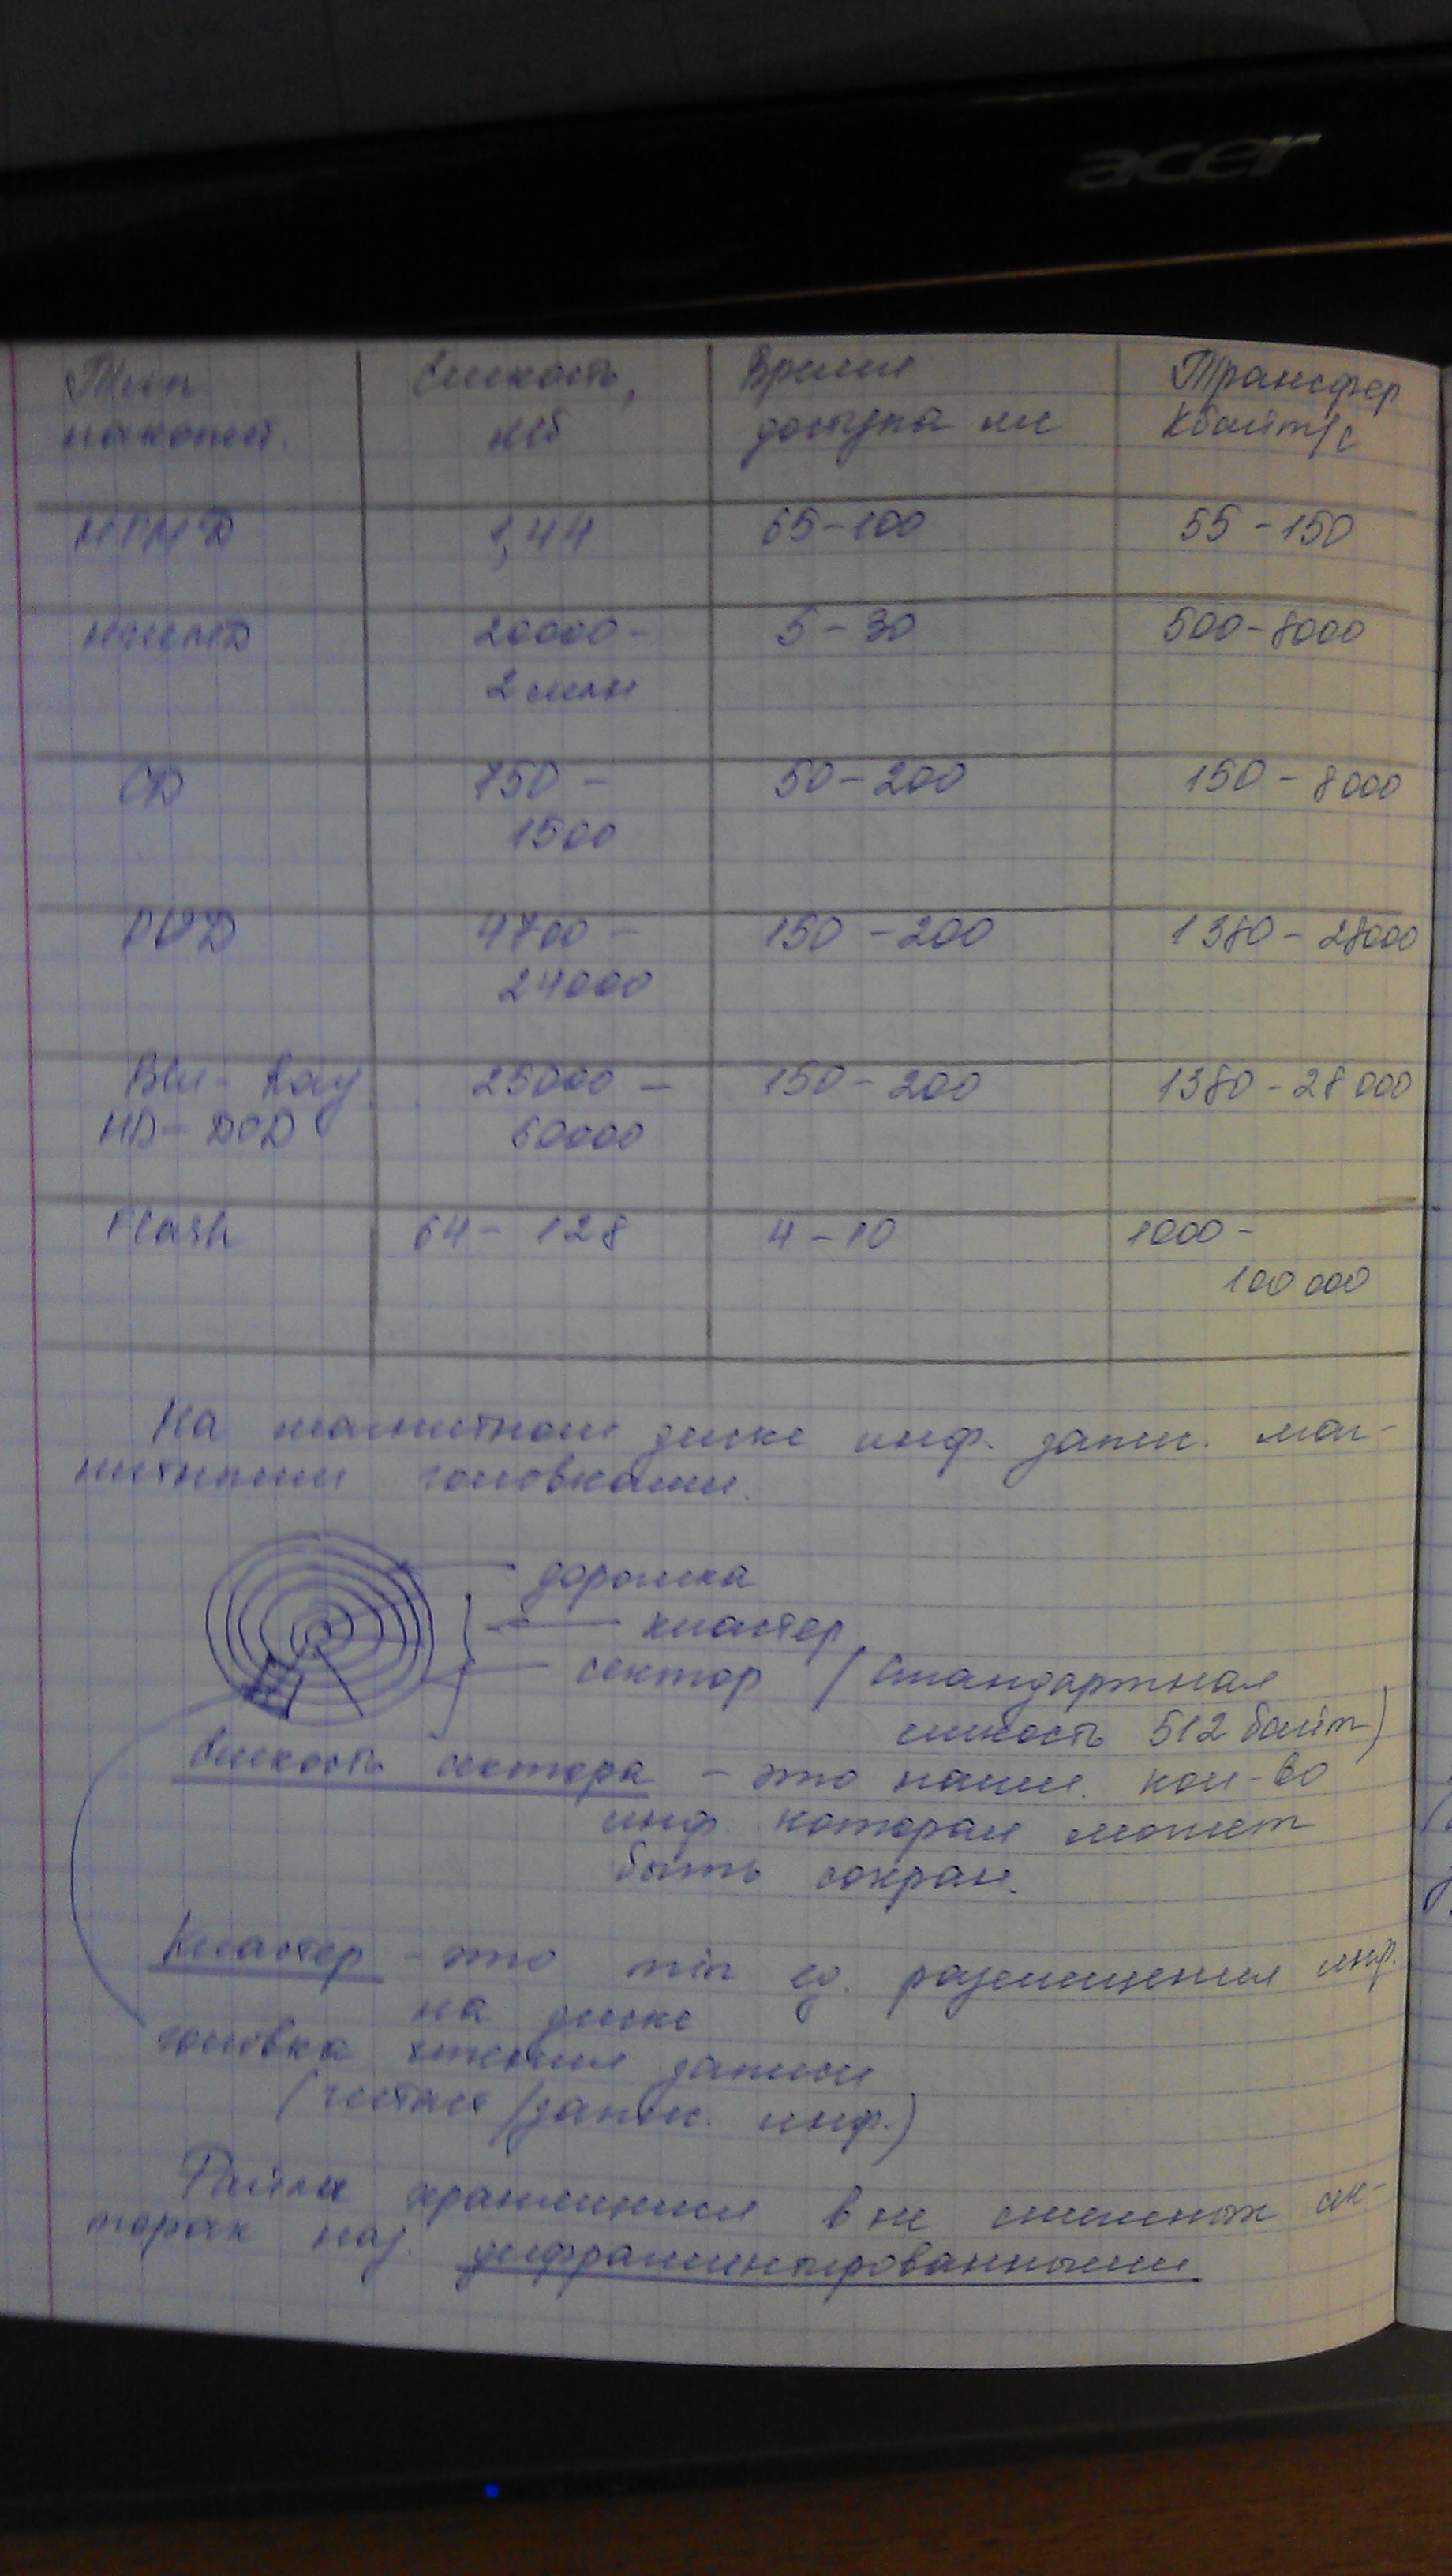 acer
Тип Емкость, Время Трансфер
накопит. мб доступа мс Кбайт/с
НГМД 1,44 65-100 55-150
НЖМД 20000- 5-30 500-8000
2 млн
CD 750- 50-200 150-8000
1500
DVD 4700- 150-200 1380-28000
24000
Blu-Ray 25000- 150-200 1380-28000
HD-DVD 60000
Flash 64-128 4-10 1000-
100 000
На магнитном диске инф. запис. маг-
нитными головками.
дорожка
кластер
сектор (стандартная
емкость 512 байт)
Емкость сектора - это наим. кол-во
инф которая может
быть сохран.
Кластер - это min ед. размещения инф.
на диске
головка чтения записи
(читает/запис. инф.)
Файлы хранящиеся в не смежных сек-
торах наз. дифрагментированными